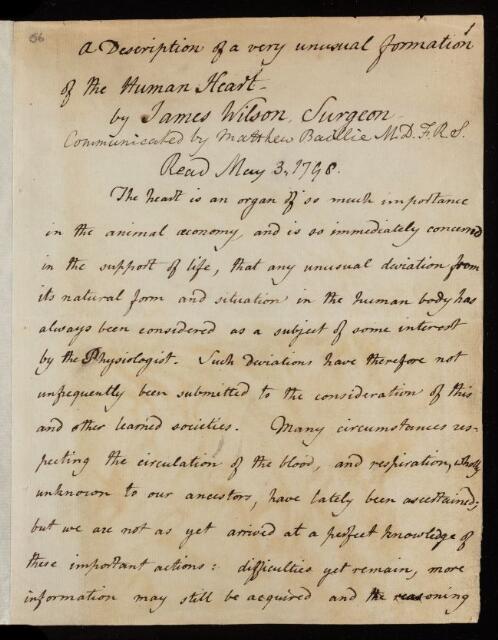 56
1
A Description of a very unusual formation
of the Human Heart.
by James Wilson, Surgeon.
Communicated by Matthew Baillie M.D. F.R.S.
Read May 3, 1798.
The heart is an organ of so much importance
in the animal œconomy, and is so immediately concerned
in the support of life, that any unusual deviation from
its natural form and situation in the human body has
always been considered as a subject of some interest
by the Physiologist. Such deviations have therefore not
unfrequently been submitted to the consideration of this
and other learned societies. Many circumstances res-
pecting the circulation of the blood, and respiration, wholly
unknown to our ancestors, have lately been ascertained;
but we are not as yet arrived at a perfect knowledge of
these important actions: difficulties yet remain, more
information may still be acquired and the reasoning